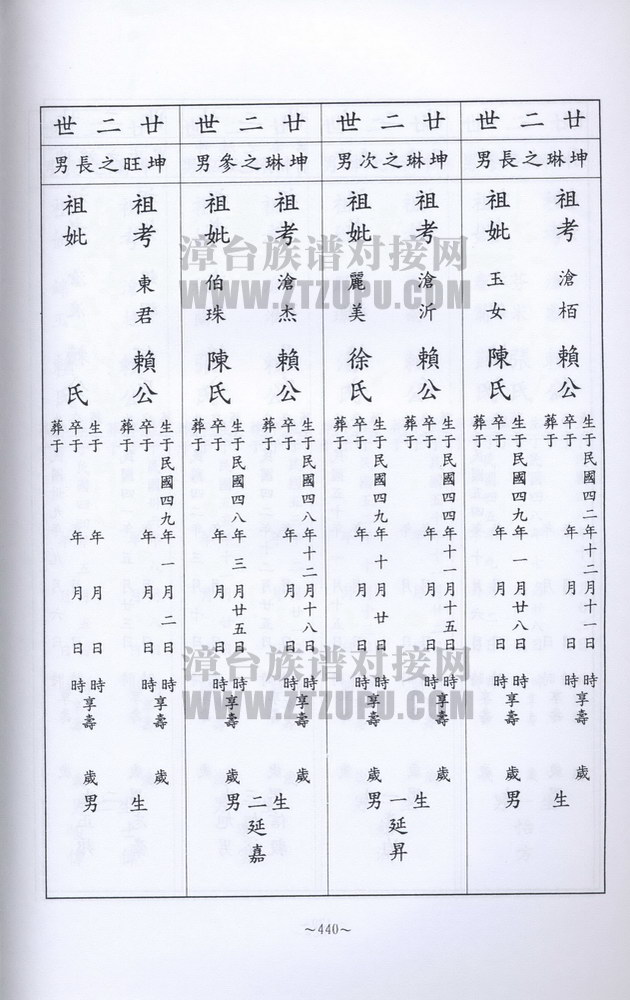 廿二世
坤琳之長男
祖考 滄栢 賴公
生于民國四二年十二月十一日時
卒于 年 月 日 時享壽 歲
葬于
祖妣 玉女 陳氏
生于民國四九年一月廿八日時
卒于 年 月 日 時享壽 歲
葬于
生 男
廿二世
坤琳之次男
祖考 滄沂 賴公
生于民國四四年十一月十五日時
卒于 年 月 日 時享壽 歲
葬于
祖妣 麗美 徐氏
生于民國四九年十月廿日時
卒于 年 月 日 時享壽 歲
葬于
生一男
延昇
廿二世
坤琳之參男
祖考 滄杰 賴公
生于民國四八年十二月十八日時
卒于 年 月 日 時享壽 歲
葬于
祖妣 伯珠 陳氏
生于民國四八年三月廿五日時
卒于 年 月 日 時享壽 歲
葬于
生二男
延嘉
廿二世
坤旺之長男
祖考 東君 賴公
生于民國四九年一月二日時
卒于 年 月 日 時享壽 歲
葬于
祖妣 氏
生于 年 月 日 時
卒于 年 月 日 時享壽 歲
葬于
生 男
漳台族谱对接网
WWW.ZTZUPU.COM
漳台族谱对接网
WWW.ZTZUPU.COM
~440~